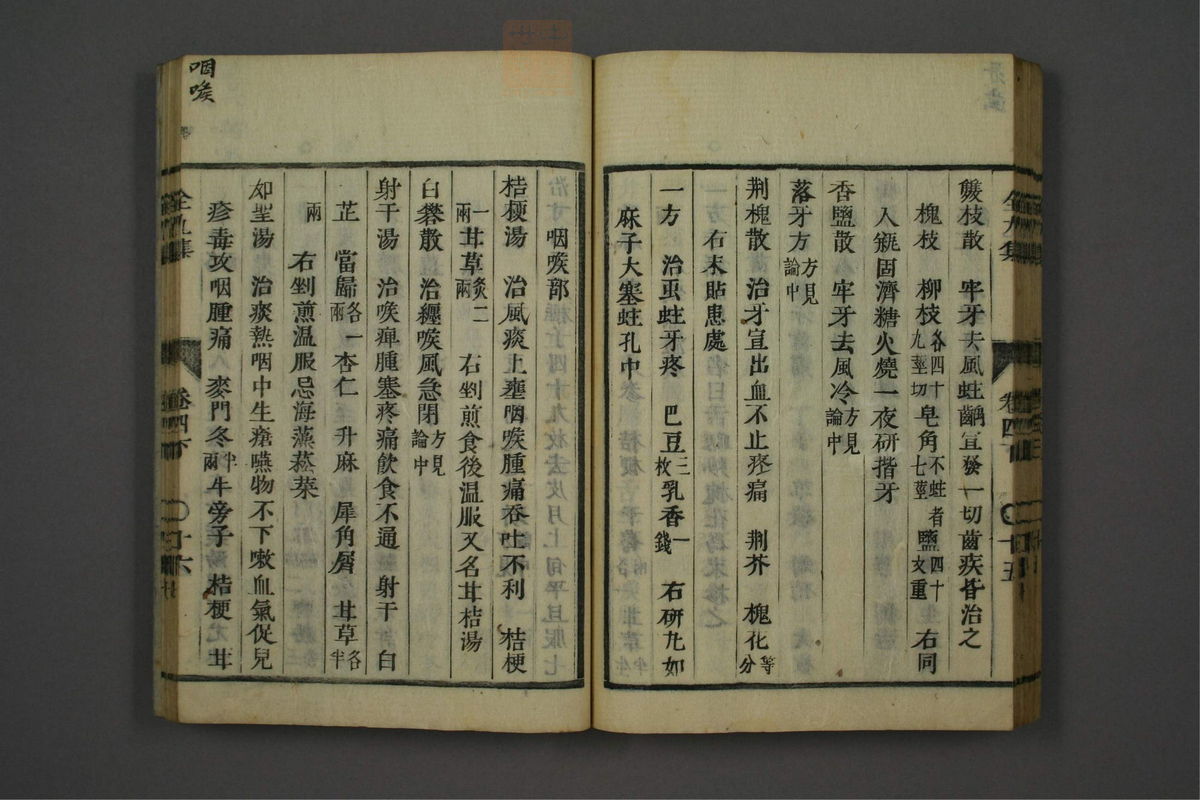 牢牙去風蛀齲宣發一切齒疾皆治之
槐枝　柳枝各四十九莖切　皂角不蛀者七莖　鹽四十文重　右同
入瓶固濟糖火燒一夜研揩牙
香鹽散　牢牙去風冷方見論中
落牙方方見論中
荆槐散　治牙宣出血不止疼痛　荆芥　槐花等分
右末貼患處
一方　治虫蛀牙疼　巴豆三枚　乳香一錢　右研九如
麻子大塞蛀孔中
咽喉部
桔梗湯　治風痰上壅咽喉腫痛吞吐不利　桔梗
一兩　甘草炙二兩　右剉煎食後温服又名甘桔湯
白礬散　治纏喉風急閉方見論中
射干湯　治喉痺腫塞疼痛飲食不通　射干　白
芷　當歸各一兩　杏仁　升麻　犀角屑　甘草各半
兩　右剉煎温服忌海藻菘菜
如聖湯　治痰熱咽中生瘡嚥物不下嗽血氣促兒
疹毒攻咽腫痛　麥門冬半兩　牛旁子　桔梗　甘
咽喉
卷四下
十五
卷四下
十六